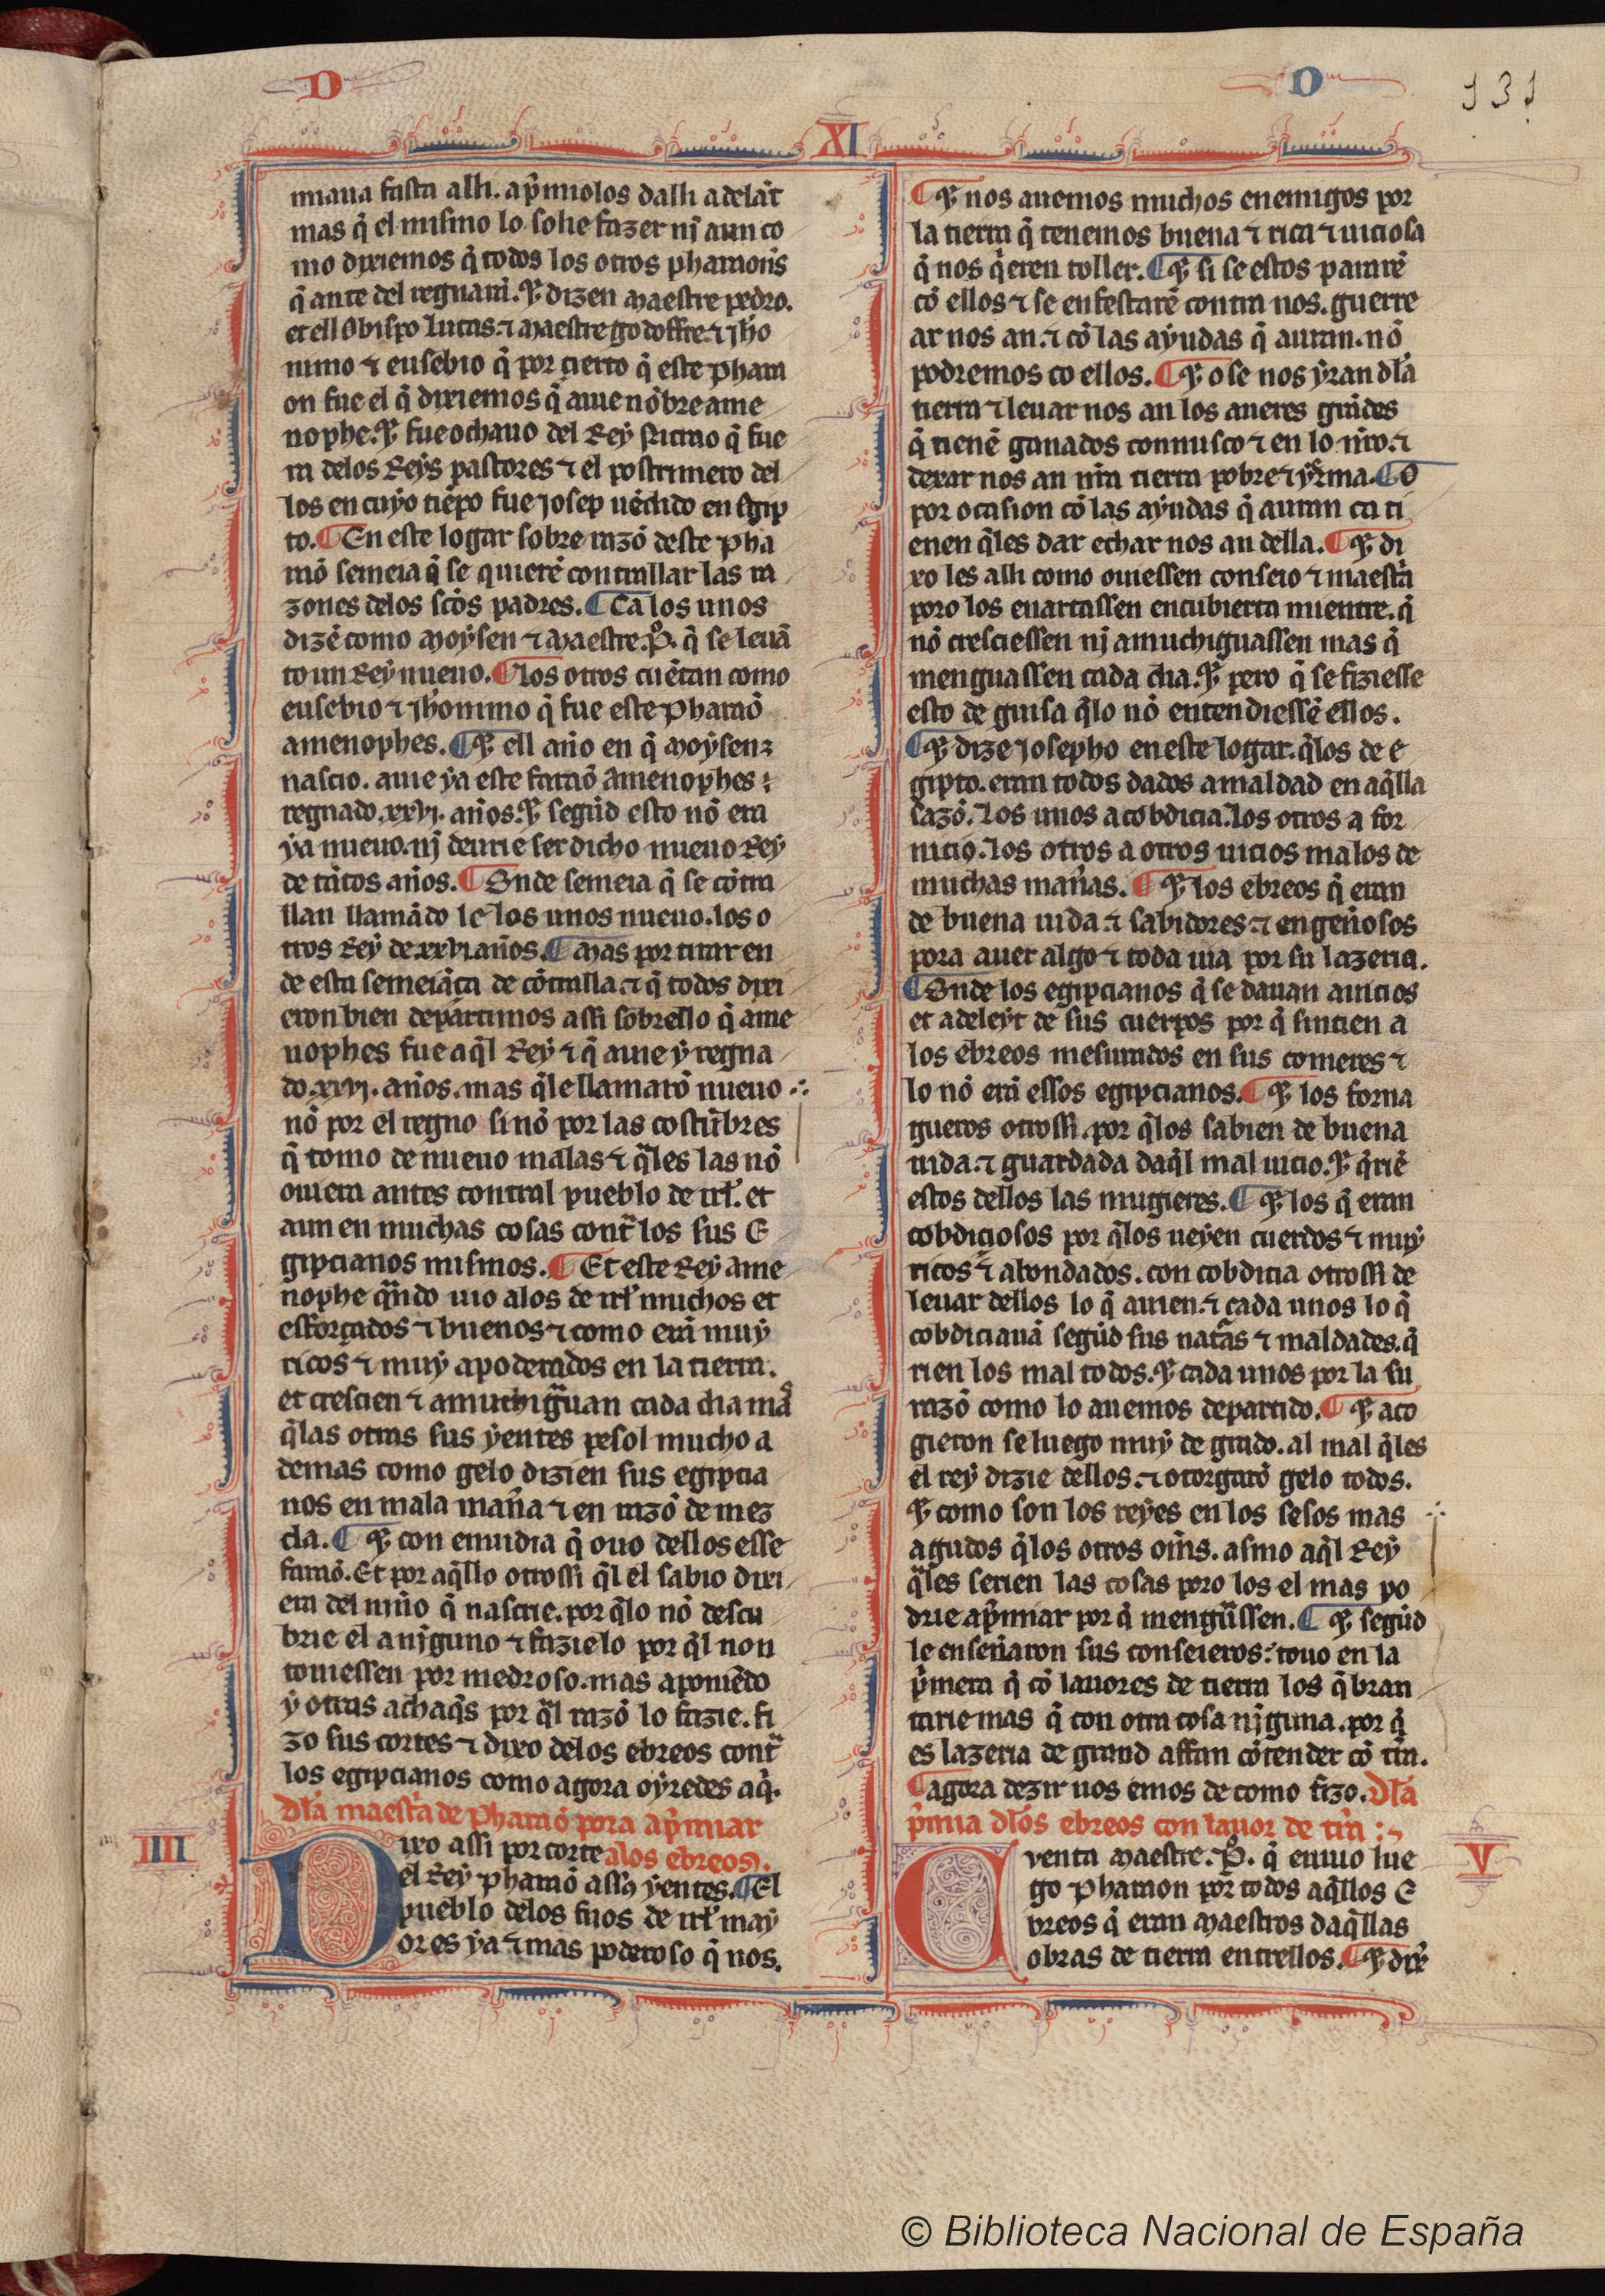 D
D
131
XI
miaua fasta alli. ap̃miolos dalli adelãt
mas q̃ el mismo lo solie fazer nĩ aun co
mo dixiemos q̃ todos los otros pharaoñs
q̃ ante del regnarã. ⁊ dizen maestre pedro.
et ell Obispo lucas. ⁊ maestre godoffre. ⁊ jh̃o
nimo ⁊ eusebio q̃ por cierto q̃ este phara
on fue el q̃ dixiemos q̃ auie nõbre ame
nophe. ⁊ fue ochauo del Rey q̃ fue
ra delos Reys pastores ⁊ el postrimero del
los en cuyo tiẽpo fue josep uẽdido en egip
to. ¶ En este logar sobre razõ deste pha
raõ semeia q̃ se quierẽ contrallar las ra
zones delos sc̃os padres. ¶ Ca los unos
dizẽ como moysen ⁊ maestre .P̊. q̃ se leuã
to un Rey nueuo. ¶ los otros cuẽtan como
eusebio ⁊ jh̃onimo q̃ fue este pharaõ
amenophes. ¶ ⁊ ell año en q̃ moysen
nascio. auie ya este faraõ amenophes
regnado .xxvj. años. ⁊ segũd esto nõ era
ya nueuo. nĩ deurie ser dicho nueuo Rey
de tãtos años. ¶ Onde semeia q̃ se cõtra
llan llamãdo le los unos nueuo. los o
tros Rey de xxvj años. ¶ mas por tirar en
de esta semeiãça de cõtralla. ⁊ q̃ todos dixi
eron bien departimos assi sobrello q̃ ame
nophes fue aq̃l Rey ⁊ q̃ auie y regna
do .xxvj. años. mas q̃le llamarõ nueuo
nõ por el regno sinõ por las costũbres
q̃ tomo de nueuo malas ⁊ q̃les las nõ
ouiera antes contral pueblo de irl̃. et
aun en muchas cosas cont̃ los sus E
gipcianos mismos. ¶ Et este Rey ame
nophe q̃ndo uio alos de irl̃ muchos et
esforçados ⁊ buenos ⁊ como erã muy
ricos ⁊ muy apoderados en la tierra.
et crescien ⁊ amuchig̃uan cada dia mas
q̃las otras sus yentes pesol mucho a
demas como gelo dizien sus egipcia
nos en mala mañ̃a ⁊ en razõ de mez
cla. ¶ ⁊ con enuidia q̃ ouo dellos esse
faraõ. Et por aq̃llo otrossi q̃l el sabio dixi
era del niño q̃ nascrie. por q̃lo nõ descu
brie el a nĩguno ⁊ fazielo por q̃l non
touiessen por medroso. mas aponiẽdo
y otras achaq̃s por q̃l razõ lo fazie. fi
zo sus cortes ⁊ dixo delos ebreos cont̃
los egipcianos como agora oyredes aq̃.
Dl̃a maest̃a de Pharaõ pora ap̃miar
alos ebreos.
III
Dixo assi por corte
el Rey pharaõ assus yentes. ¶ El
pueblo delos fijos de irl̃ may
ores ya ⁊ mas poderoso q̃ nos.
¶ ⁊ nos auemos muchos enemigos por
la tierra q̃ tenemos buena ⁊ rica ⁊ uiciosa
q̃ nos q̃eren toller. ¶ ⁊ si se estos pararẽ
cõ ellos ⁊ se enfestarẽ contra nos. guerre
ar nos an. ⁊ cõ las ayudas q̃ auran. nõ
podremos co ellos. ¶ ⁊ o se nos yran dl̃a
tierra ⁊ leuar nos an los aueres grãdes
q̃ tienẽ ganados connusco ⁊ en lo nr̃o. ⁊
dexar nos an nr̃a tierra pobre ⁊ yerma. ¶ O
por ocasion cõ las ayudas q̃ auran ca ti
enen q̃les dar echar nos an della. ¶ ⁊ di
xo les alli como ouiessen conseio ⁊ maest̃a
poro los enartassen encubierta mientre. q̃
nõ cresciessen nĩ amuchiguassen mas q̃
menguassen cada dia. ⁊ pero q̃ se fiziesse
esto de guisa q̃lo nõ entendiessẽ ellos.
¶ ⁊ dize josepho en este logar. q̃los de e
gipto. eran todos dados a maldad en aq̃lla
sazõ. los unos a cobdicia. los otros a for
nicio. los otros a otros uicios malos de
muchas mañas. ¶ ⁊ los ebreos q̃ eran
de buena uida. ⁊ sabidores. ⁊ engeñosos
pora auer algo ⁊ toda uia por su lazeria.
¶ Onde los egipcianos q̃ se dauan auicios
et adeleyt de sus cuerpos por q̃ sintien a
los ebreos mesurados en sus comeres ⁊
lo nõ erã essos egipcianos. ¶ ⁊ los forna
gueros otrossi. por q̃los sabien de buena
uida. ⁊ guardada daq̃l mal uicio. ⁊ q̃riẽ
estos dellos las mugieres. ¶ ⁊ los q̃ eran
cobdiciosos por q̃los ueyen cuerdos ⁊ muy
ricos ⁊ abondados. con cobdicia otrossi de
leuar dellos lo q̃ auien. ⁊ cada unos lo q̃
cobdiciauã segũd sus nat̃as ⁊ maldades. q̃
rien los mal todos. ⁊ cada unos por la su
razõ como lo auemos departido. ¶ ⁊ aco
gieron se luego muy de grado. al mal q̃les
el rey dizie dellos. ⁊ otorgarõ gelo todos.
⁊ como son los reyes en los sesos mas
agudos q̃los otros om̃s. asmo aq̃l Rey
q̃les serien las cosas poro los el mas po
drie ap̃miar por q̃ meng̃ssen. ¶ ⁊ segũd
le enseñaron sus conseieros: touo en la
p̃mera q̃ cõ lauores de tierra los q̃bran
tarie mas q̃ con otra cosa nĩguna. por q̃
es lazeria de grand affan cõtender cõ tr̃a.
¶ agora dezir uos emos de como fizo. Dl̃a
p̃mia dl̃os ebreos con lauor de tr̃a
V
Cuenta maestre .P̊. q̃ enuio lue
go pharaon por todos aq̃llos E
breos q̃ eran maestros daq̃llas
obras de tierra entrellos. ¶ ⁊ dix̃
© Biblioteca Nacional de España